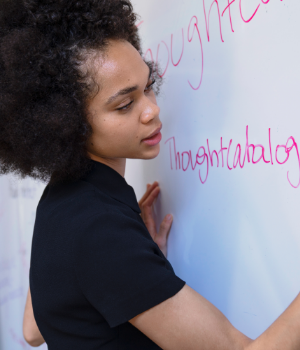 Thoughtca
ThoughtCatalog